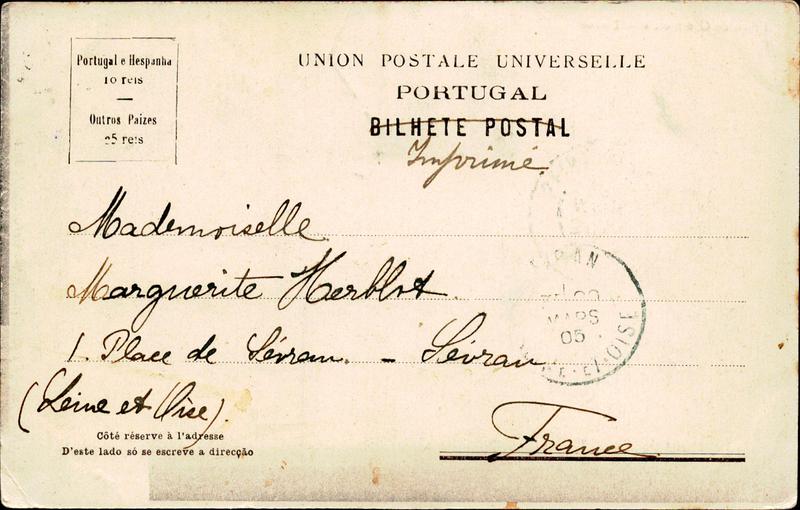 Portugal e Hespanha
10 reis
Outros Paizes
25 reis
UNION POSTALE UNIVERSELLE
PORTUGAL
BILHETE POSTAL
Imprimé
Mademoiselle
Marguerite Herblot.
1. Place de Sévran. - Sévran
(Seine et Oise).
France
MARS
05
ET-OISE
Côté réserve à l'adresse
D'este lado só se escreve a direcção